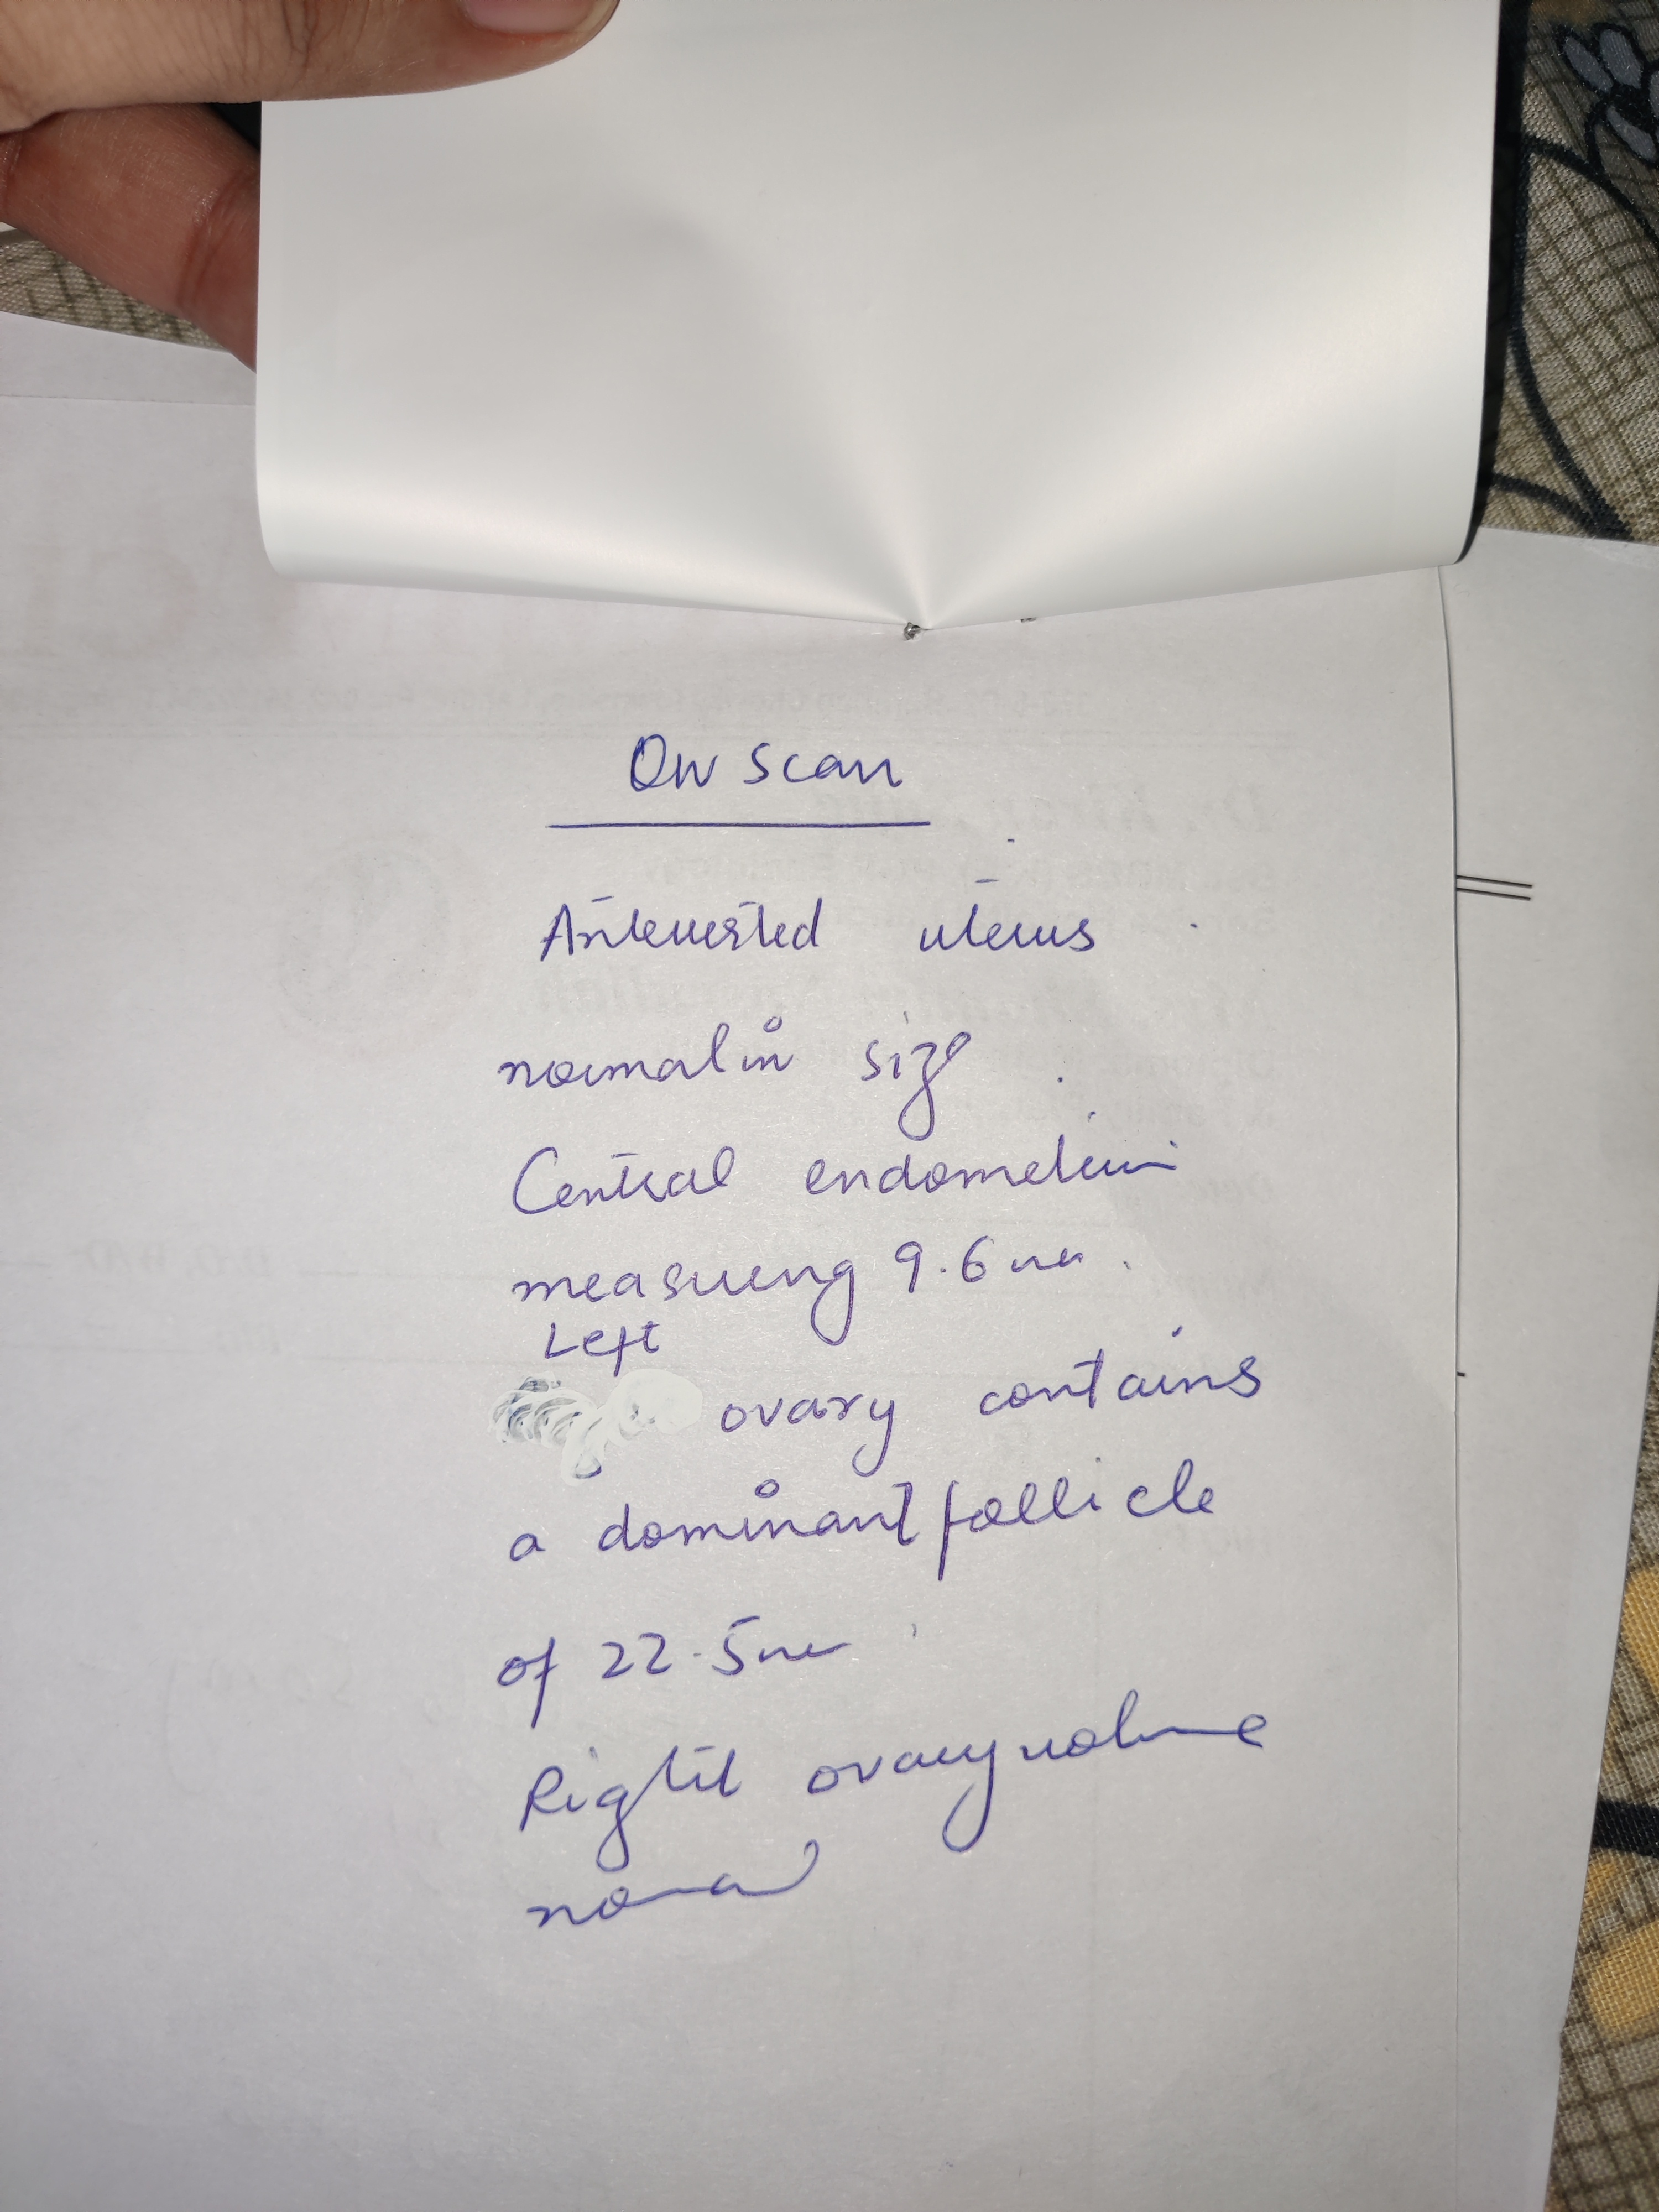 On scan
Anteverted uterus
normal in size
Central endometrium
measuring 9.6 mm.
Left
ovary contains
a dominant follicle
of 22.5 mm
Right ovary volume
normal